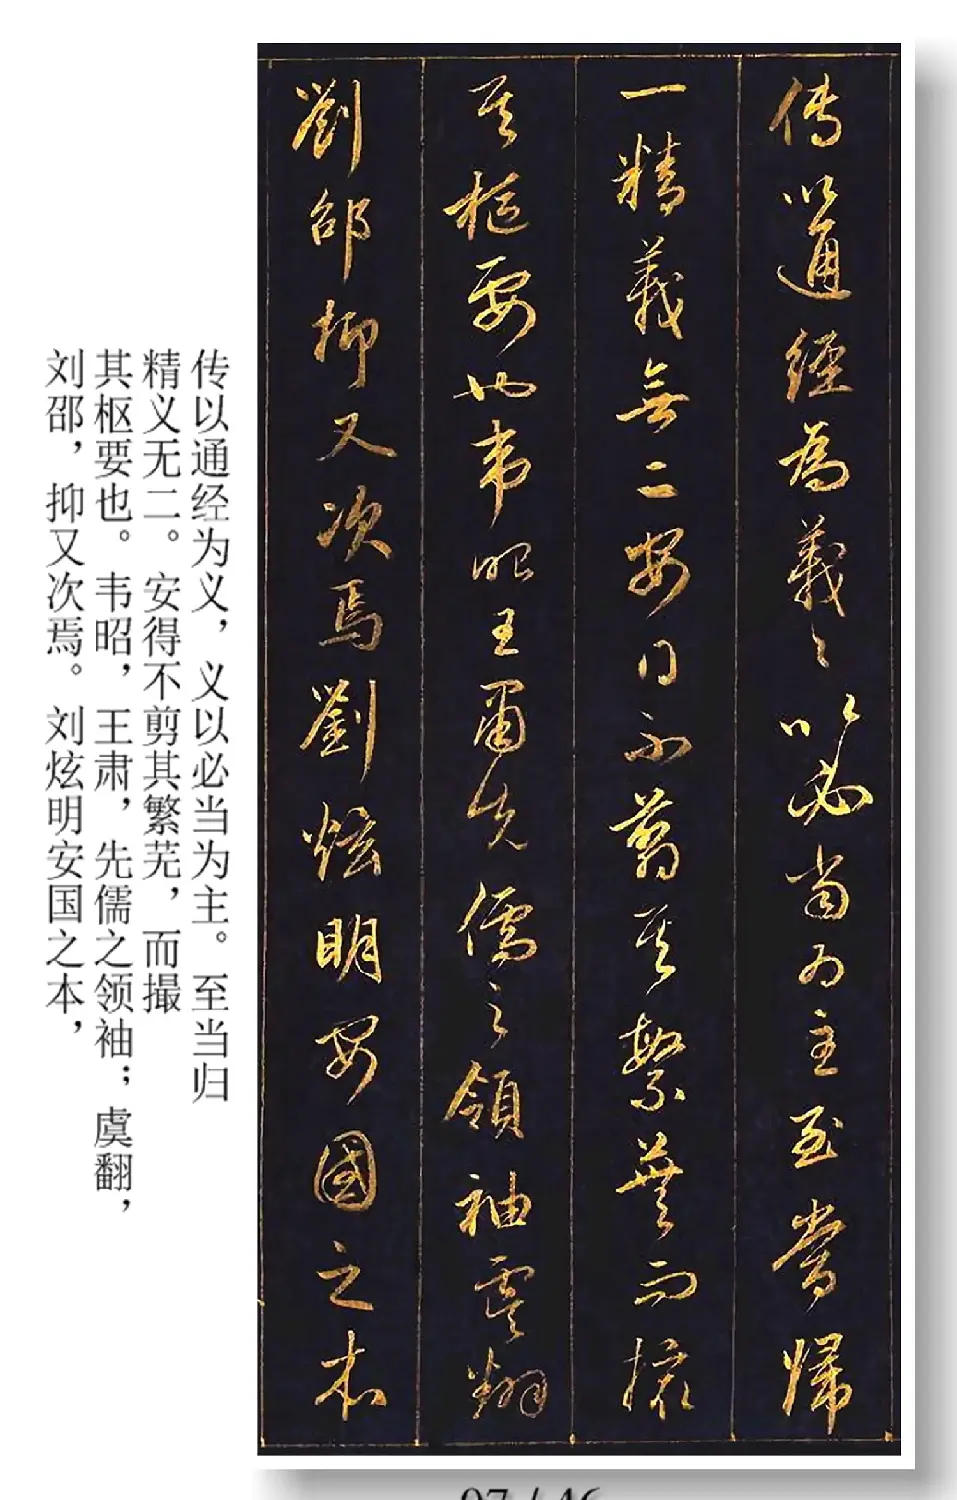 傳以通經為義〻以必當為主至當歸
一精義無二安得不翦其繁蕪而撮
其樞要也韋昭王肅先儒之領袖虞翻
劉邵抑又次焉劉炫明安國之本
传以通经为义，义以必当为主。至当归
精义无二。安得不剪其繁芜，而撮
其枢要也。韦昭，王肃，先儒之领袖；虞翻，
刘邵，抑又次焉。刘炫明安国之本，